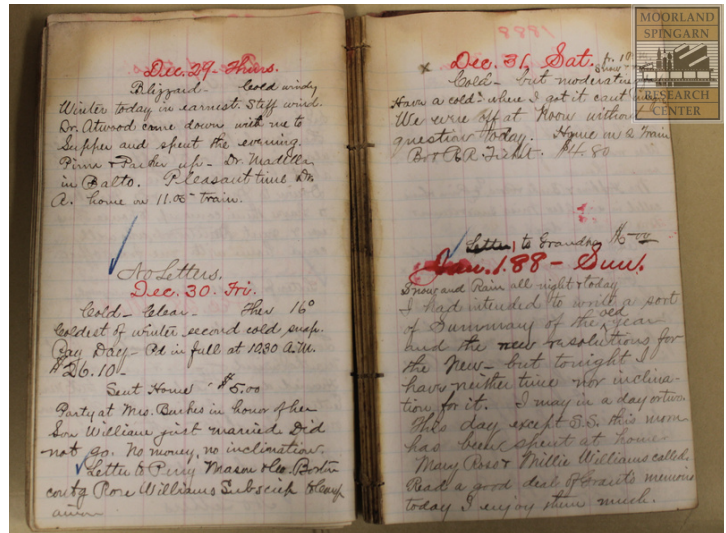 Dec. 29 Thurs.
Blizzard - Cold windy
Winter today in earnest. Stiff wind.
Dr. Atwood came down with me to
Supper and spent the evening.
Pinn & Parker up - Dr. Madella
in Balto. Pleasant time Dr.
A. home on 11.05 train.
No Letters.
Dec. 30. Fri.
Cold - Clear. Ther 16°
Coldest of winter second cold snap.
Pay Day - Pd in full at 10.30 A.M.
$26.10 -
Sent Home - $5.00
Party at Mrs. Burkes in honor of her
Son William just married Did
not go. No money, no inclination.
Letter to Perry Mason & Co. Boston
Rose Williams Subscrip
1888
x Dec. 31, Sat.
Snow
Cold - but moderating
Have a cold - where I got it cant
We were off at Noon without
question today. Home on 2 Train
Bot R.R. Ticket. $4.80
Letter to Grandma
Jan. 1. 88 - Sun.
Snow and Rain all night & today
I had intended to write a sort
of Summary of the old year
and the new resolutions for
the New - but tonight I
have neither time nor inclina-
tion for it. I may in a day or two.
This day except S.S. this morn
has been spent at home.
Mary Ross & Millie Williams called.
Read a good deal of Grant's memoirs
today I enjoy them much.
MOORLAND
SPINGARN
RESEARCH
CENTER